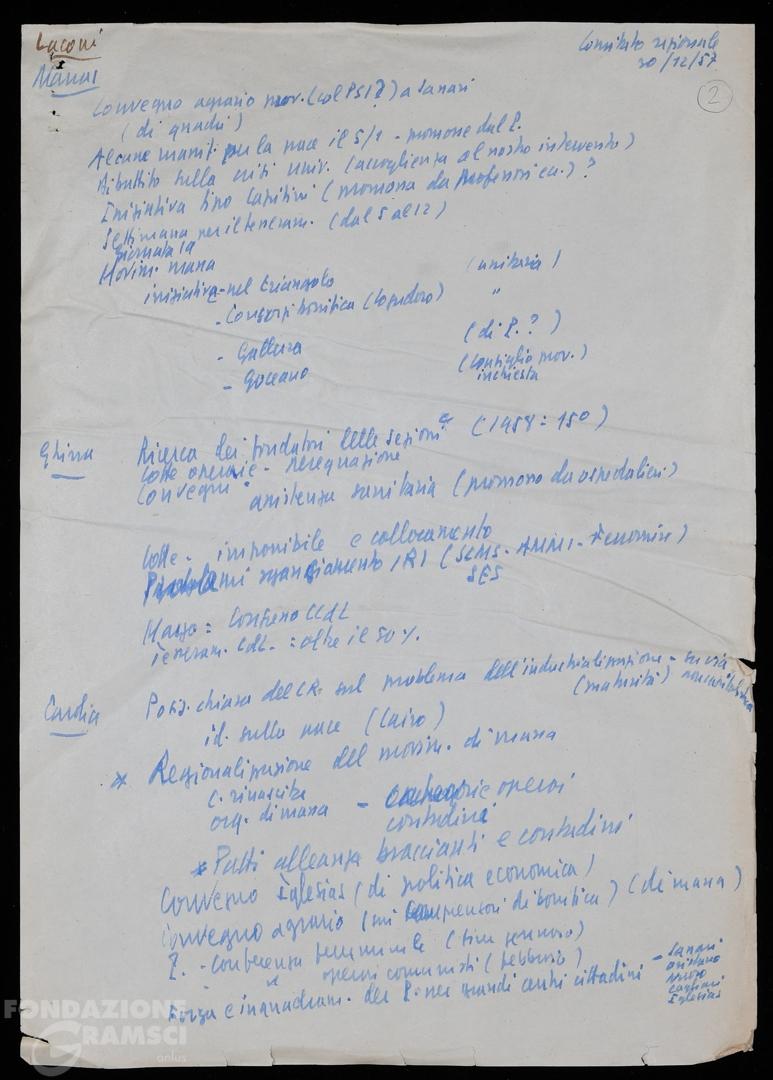 Laconi
Comitato regionale
20/12/57
2
Manai
Convegno agrario prov. (col PSI?) a Sassari
(di quadri)
Alcune manif. per la pace il 5/1 - promosse dal P.
Dibattito sulla crisi univ. (accoglienza al nostro intervento)
Iniziativa tipo Capitini (promossa da Professori ecc.) ?
Settimana per il tesseram. (dal 5 al 12)
Giornata
Movim. massa
iniziativa - nel triangolo (unitaria)
- Consorzi bonifica (Logudoro) "
- Gallura (di P. ?)
- Goceano (Consiglio prov.)
inchiesta
Ghirra
Ricerca dei fondatori delle sezioni (1958 = 150)
Lotte operaie - perequazione
Convegni assistenza sanitaria (promosso da ospedalieri)
Lotte - imponibile e collocamento
Problemi sganciamento IRI (SCMS - AMMI - Ferromin)
SES
Marzo = Congresso CCdL
Tesseram. CdL = oltre il 50%.
Cardia
Posiz. chiara del CR. sul problema dell'industrializzazione - su via
(maturità)
id. sulla pace (Cairo)
* Regionalizzazione del movim. di massa
C. rinascita
org. di massa - categorie operai
contadini
* Patti alleanza braccianti e contadini
Convegno Iglesias (di politica economica)
Convegno agrario (sui comprensori di bonifica) (di massa)
P. - Conferenza femminile (fine gennaio)
" operai comunisti (febbraio)
Forza e inquadram. del P. nei grandi centri cittadini - Sassari
Oristano
Nuoro
Cagliari
Iglesias
FONDAZIONE
GRAMSCI
onlus